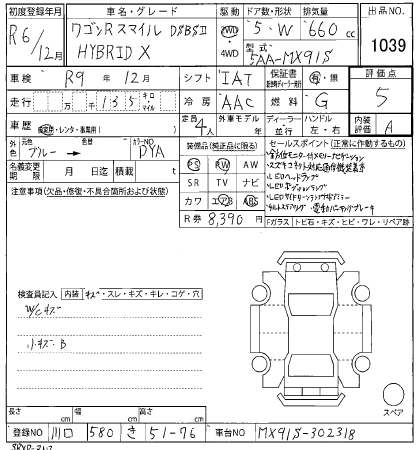 初度登録年月 車名・グレード 駆動 ドア数・形状 排気量 出品NO
R6/12月 ワゴンRスマイル DSBSⅡ HYBRID X 2WD 4WD 5・W 660cc 5AA-MX91S 1039
車検 R9年12月 シフト IAT 保証書 有・無 評価点 5
走行 万 千 135 キロ・マイル 冷房 AAC 燃料 G
車歴 自家用・レンタ・事業用( ) 定員 4人 外車モデル 年 ディーラー・並行 ハンドル 左・右 内装評価 A
外色 元色 ブルー → 色 カラーNO DYA
装備品(純正品に限る) セールスポイント(正常に作動するもの)
名義変更期限 月 日迄 積載 t
PS PW AW
SR TV ナビ
カワ エアB ABS
R券 8,390円
注意事項(欠品・修復・不具合箇所および状態)
・全方位モニター付メモリーナビゲーション
・スズキコネクト対応通信機装着車
・LEDヘッドランプ
・LEDポジションランプ
・チルトステアリング・電動パーキングブレーキ
Fガラス トビ石・キズ・ヒビ・ワレ・リペア跡
検査員記入 内装 キズ・スレ・キズ・キレ・コゲ・穴
W/Cキズ
小キズB
スペア
長さ cm 幅 cm 高さ cm
登録NO 川口 580 き 51-76 車台NO MX91S-302318